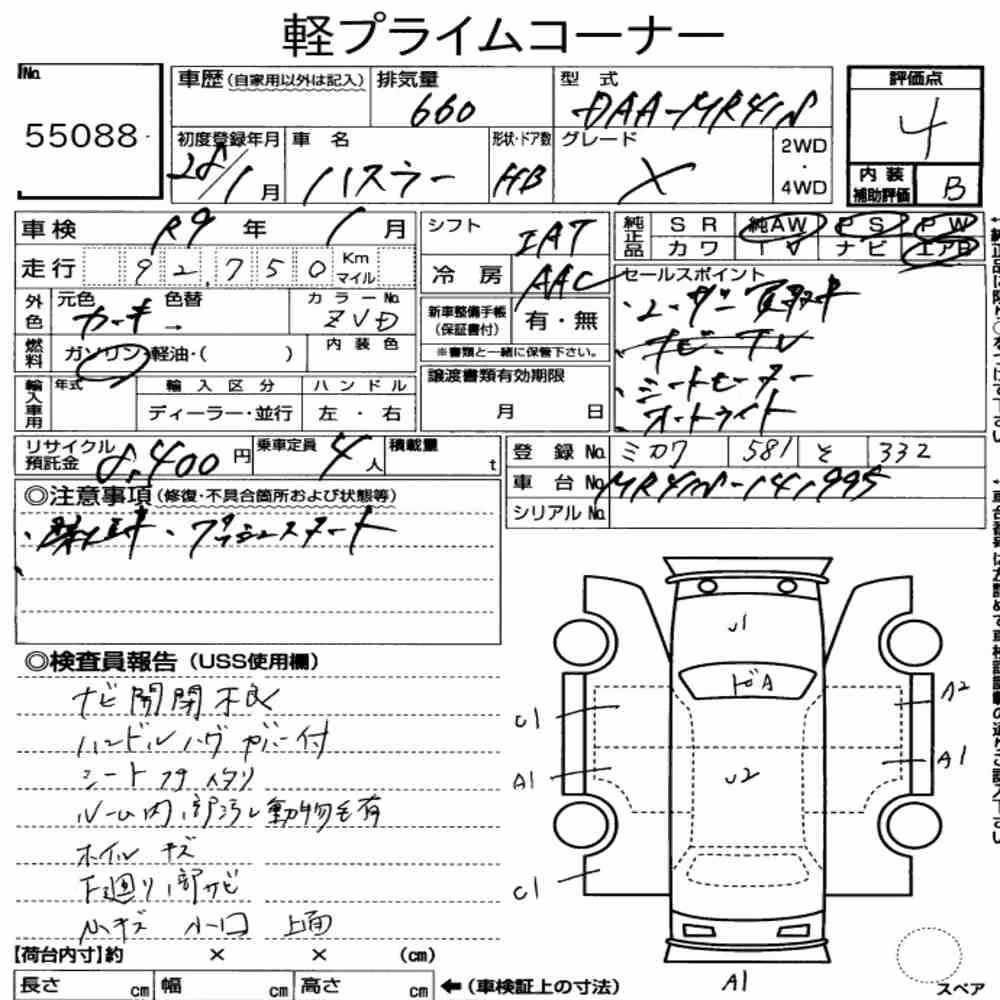 軽プライムコーナー
No. 55088
車歴(自家用以外は記入) 排気量 660
型式 DAA-MR41S
評価点 4
内装補助評価 B
初度登録年月 28/1月 車名 ハスラー 形状・ドア数 HB グレード X 2WD・4WD
車検 R9年1月 シフト IAT
純正品 SR 純AW PS PW
カワ TV ナビ エアB
走行 92,750 Km マイル 冷房 AAC
外色 元色 カーキ 色替 → カラーNo. ZVD
新車整備手帳(保証書付) 有・無
※書類と一緒に保管下さい。
燃料 ガソリン・軽油・( ) 内装色
セールスポイント
・ユーザー買取車
・ナビ・TV
・シートヒーター
オートライト
輸入車用 年式 輸入区分 ハンドル
ディーラー・並行 左・右
譲渡書類有効期限 月 日
リサイクル預託金 8,400円 乗車定員 4人 積載量 t
登録No. ミカワ 581 そ 332
車台No. MR41S-141995
シリアルNo.
◎注意事項(修復・不具合箇所および状態等)
・禁煙車・プッシュスタート
◎検査員報告(USS使用欄)
ナビ開閉不良
ハンドルハゲ カバー付
シート フタ ヘタリ
ルーム内部汚レ動物毛有
ホイルキズ
下廻り部サビ
ルーロ 上面
U1
ドビA
U2
C1
A1
C1
A2
A1
A1
スペア
【荷台内寸】約 × × (cm)
長さ cm 幅 cm 高さ cm ←(車検証上の寸法)